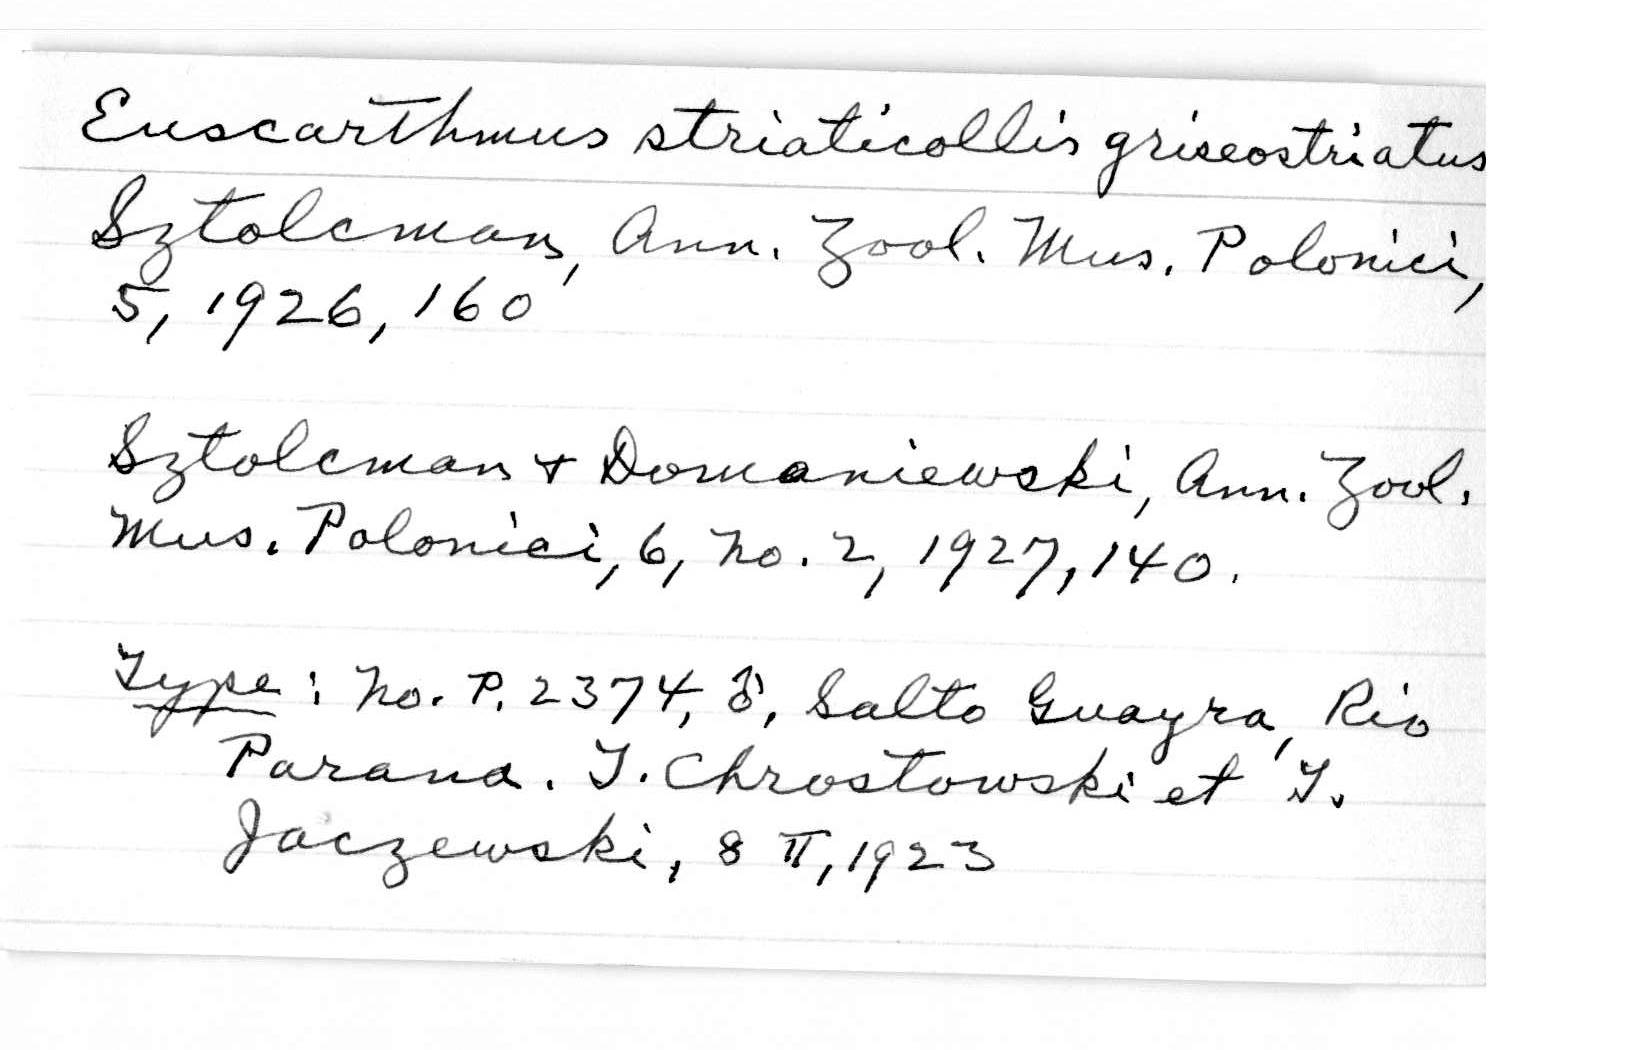 Euscarthmus striaticollis griseostriatus
Sztolcman, Ann. Zool. Mus. Polonici,
5, 1926, 160
Sztolcman + Domaniewski, Ann. Zool.
Mus. Polonici, 6, no. 2, 1927, 140.
Type: No. P. 2374, ♂, Salto Guayra, Rio
Parana. T. Chrostowski et T.
Jaczewski, 8 II, 1923